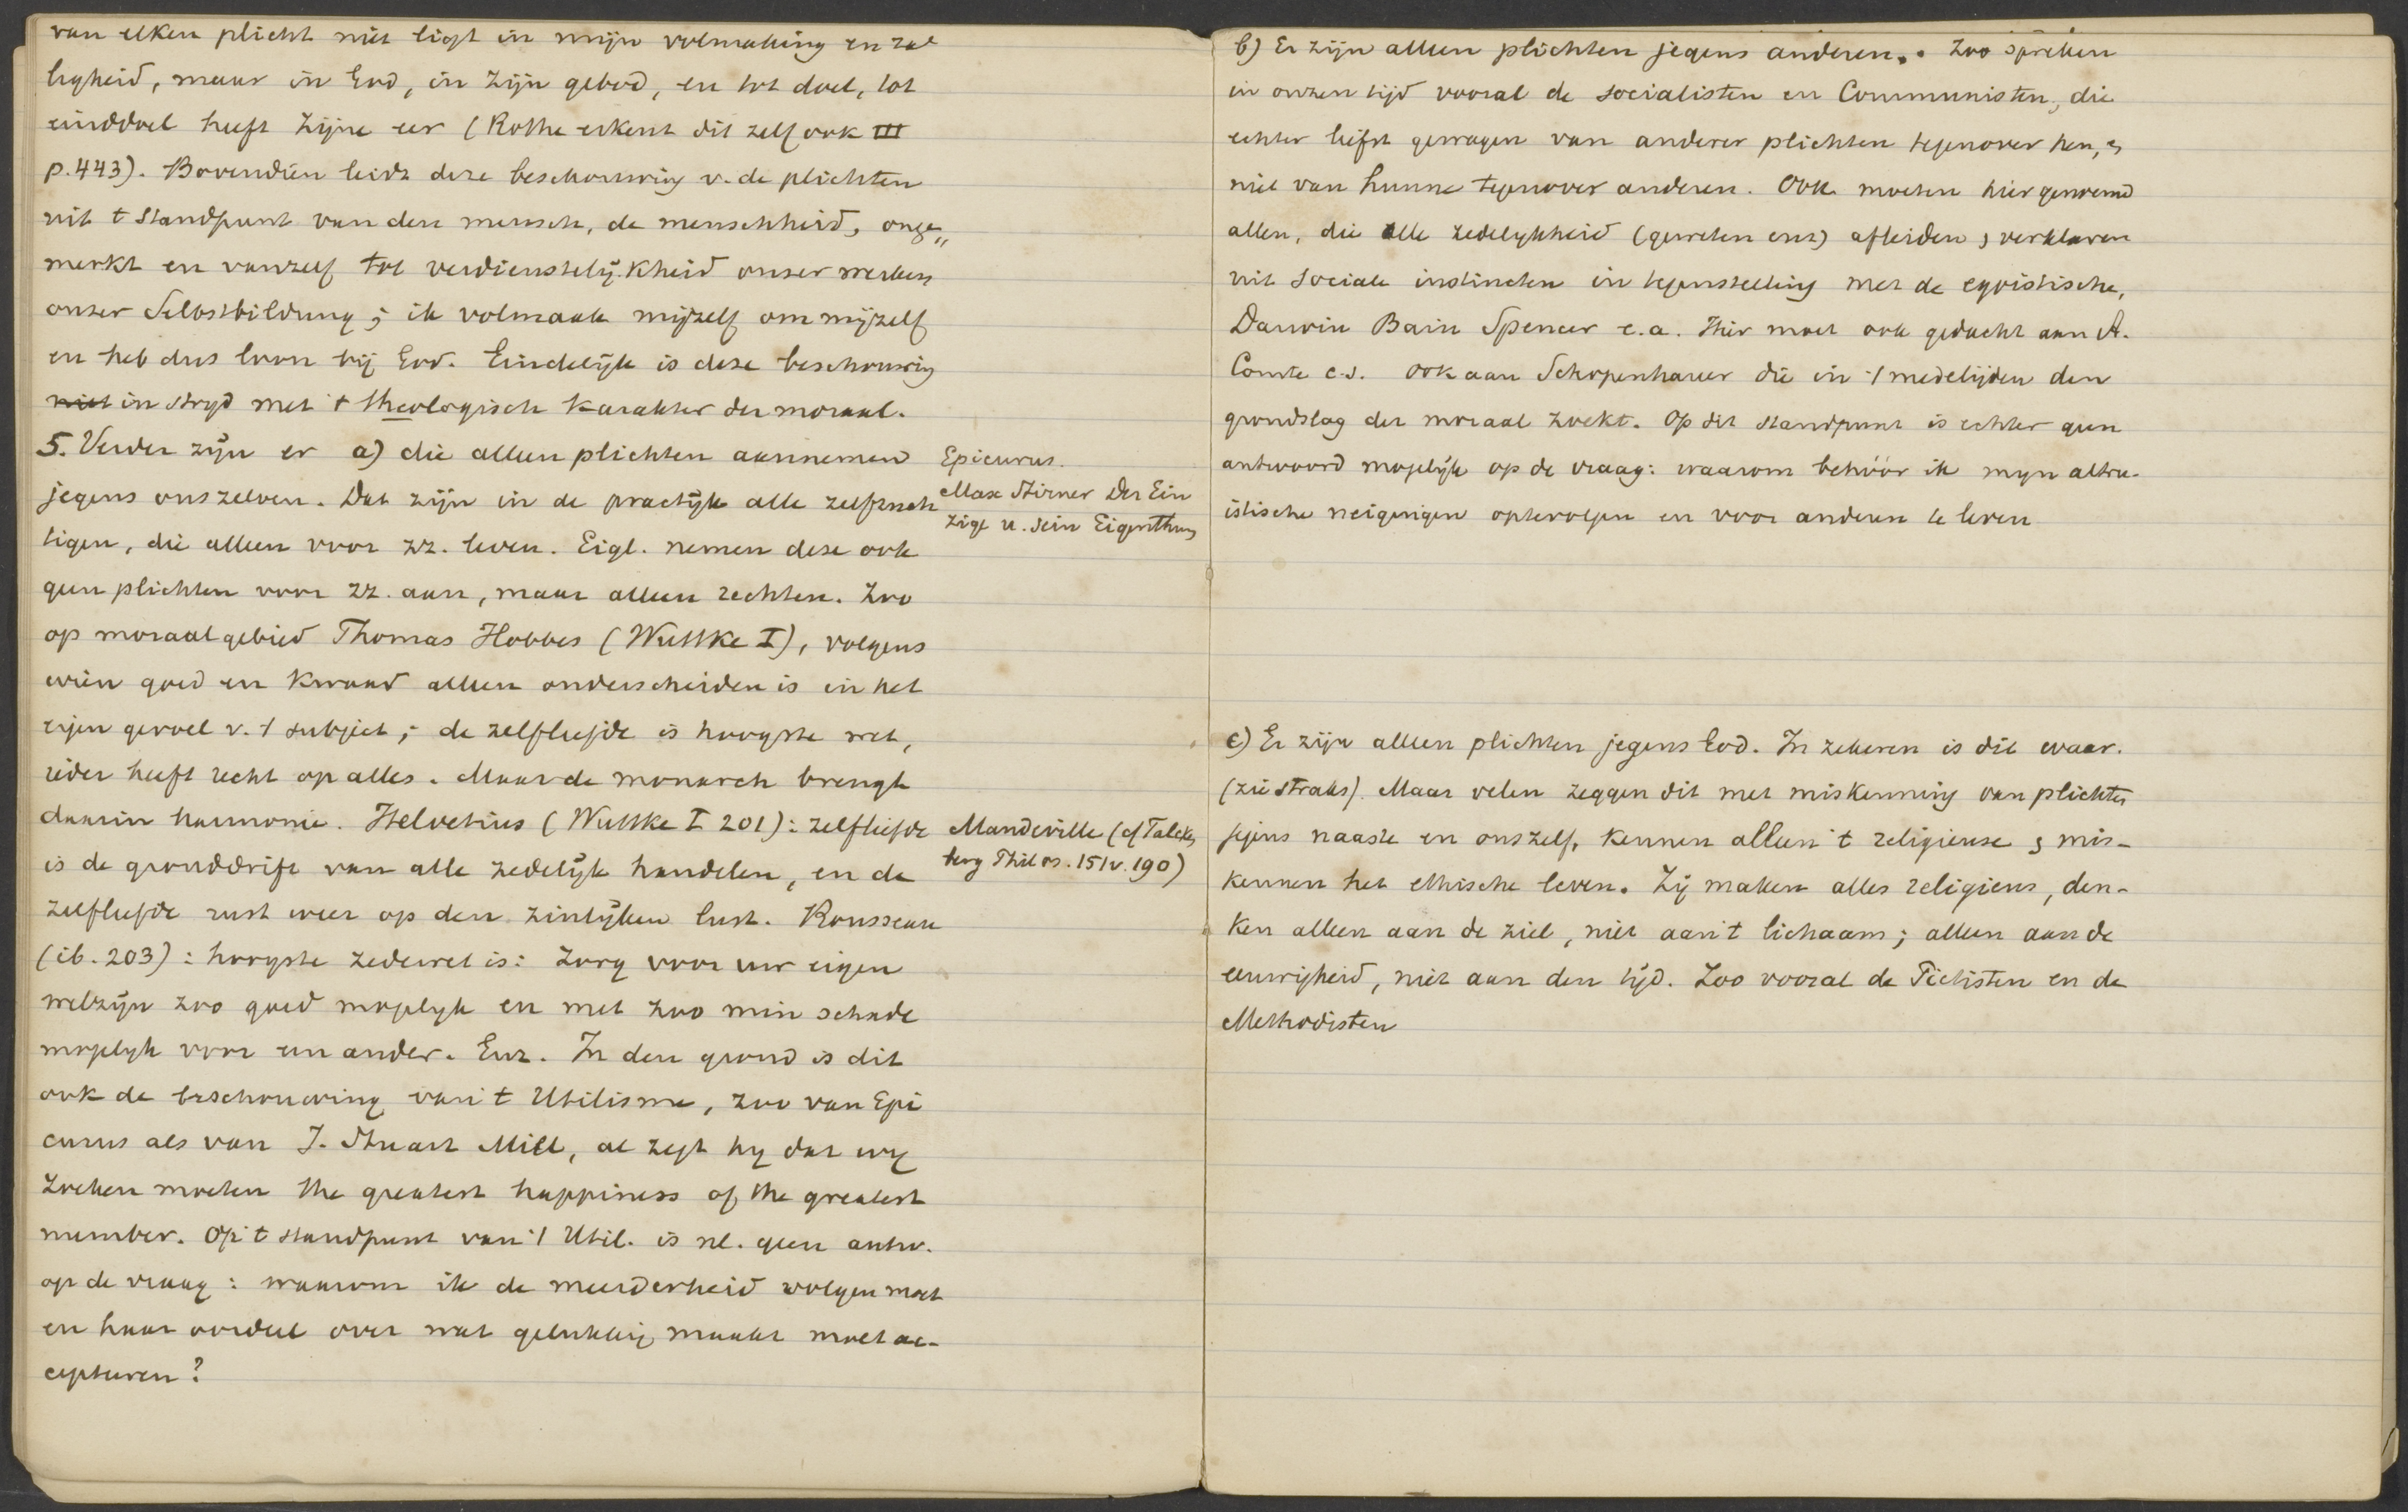 van elken plicht niet ligt in mijn volmaking en za
ligheid, maar in God, in zijn gebod, en tot doel, tot
einddoel heeft Zijne eer (Rothe erkent dit zelf ook III
p. 443). Bovendien leidt deze beschouwing v. de plichten
uit t standpunt van den mensch, de menschheid, onge„
merkt en vanzelf tot verdienstelijkheid onzer werken
onzer Selbstbildung; ik volmaak mijzelf om mijzelf
en heb dus loon bij God. Eindelijk is deze beschouwing
niet in stryd met 't theologisch karakter der moraal.
5. Verder zijn er a) die alleen plichten aannemen
jegens onszelven. Dat zijn in de practijk alle zelfzuch
tigen, die alleen voor zz. leven. Eigl. nemen deze ook
geen plichten voor zz. aan, maar alleen rechten. Zoo
op moraalgebied Thomas Hobbes (Wuttke I), volgens
wien goed en kwaad alleen onderscheiden is in het
eigen gevoel v. 't subject; de zelfliefde is hoogste wet,
ieder heeft recht op alles. Maar de monarch brengt
daarin harmonie. Helvetius (Wuttke I 201): zelfliefde
is de gronddrift van alle zedelijk handelen, en de
zelfliefde rust weer op den zinlijken lust. Rousseau
(ib. 203): hoogste zedewet is: Zorg voor uw eigen
welzijn zoo goed mogelyk en met zoo min schade
mogelyk voor een ander. Enz. In den grond is dit
ook de beschouwing van 't Utilisme, zoo van Epi
curus als van J. Stuart Mill, al zegt hy dat wy
zoeken moeten the greatest happiness of the greatest
number. Op 't standpunt van 't Util. is nl. geen antw.
op de vraag: waarom ik de meerderheid volgen moet
en haar oordeel over wat gelukkig maakt moet ac-
cepteeren?
Epicurus.
Max Stirner Der Ein
zige u. sein Eigenthum
Mandeville (cf Falcken
berg Philos. 151v. 190)
b) Er zijn alleen plichten jegens anderen. Zoo spreken
in onzen tijd vooral de socialisten en Communisten, die
echter liefst gewagen van anderer plichten tegenover hen, en
niet van hunne tegenover anderen. Ook moeten hier genoemd
allen, die alle zedelykheid (geweten enz) afleiden en verklaren
uit sociale instincten in tegenstelling met de egoistische,
Darwin Bain Spencer e.a. Hier moet ook gedacht aan A.
Comte c.s. ook aan Schopenhauer die in 't medelijden den
grondslag der moraal zoekt. Op dit standpunt is echter geen
antwoord mogelijk op de vraag: waarom behóór ik myn altru-
istische neigingen optevolgen en voor anderen te leven
c) Er zijn alleen plichten jegens God. In zekeren is dit waar.
(zie straks). Maar velen zeggen dit met miskenning van plichten
jegens naaste en onszelf, kennen alleen 't religieuse en mis-
kennen het ethische leven. Zij maken alles religieus, den-
ken alleen aan de ziel, niet aan 't lichaam; alleen aan de
eeuwigheid, niet aan den tijd. Zoo vooral de Piëtisten en de
Methodisten